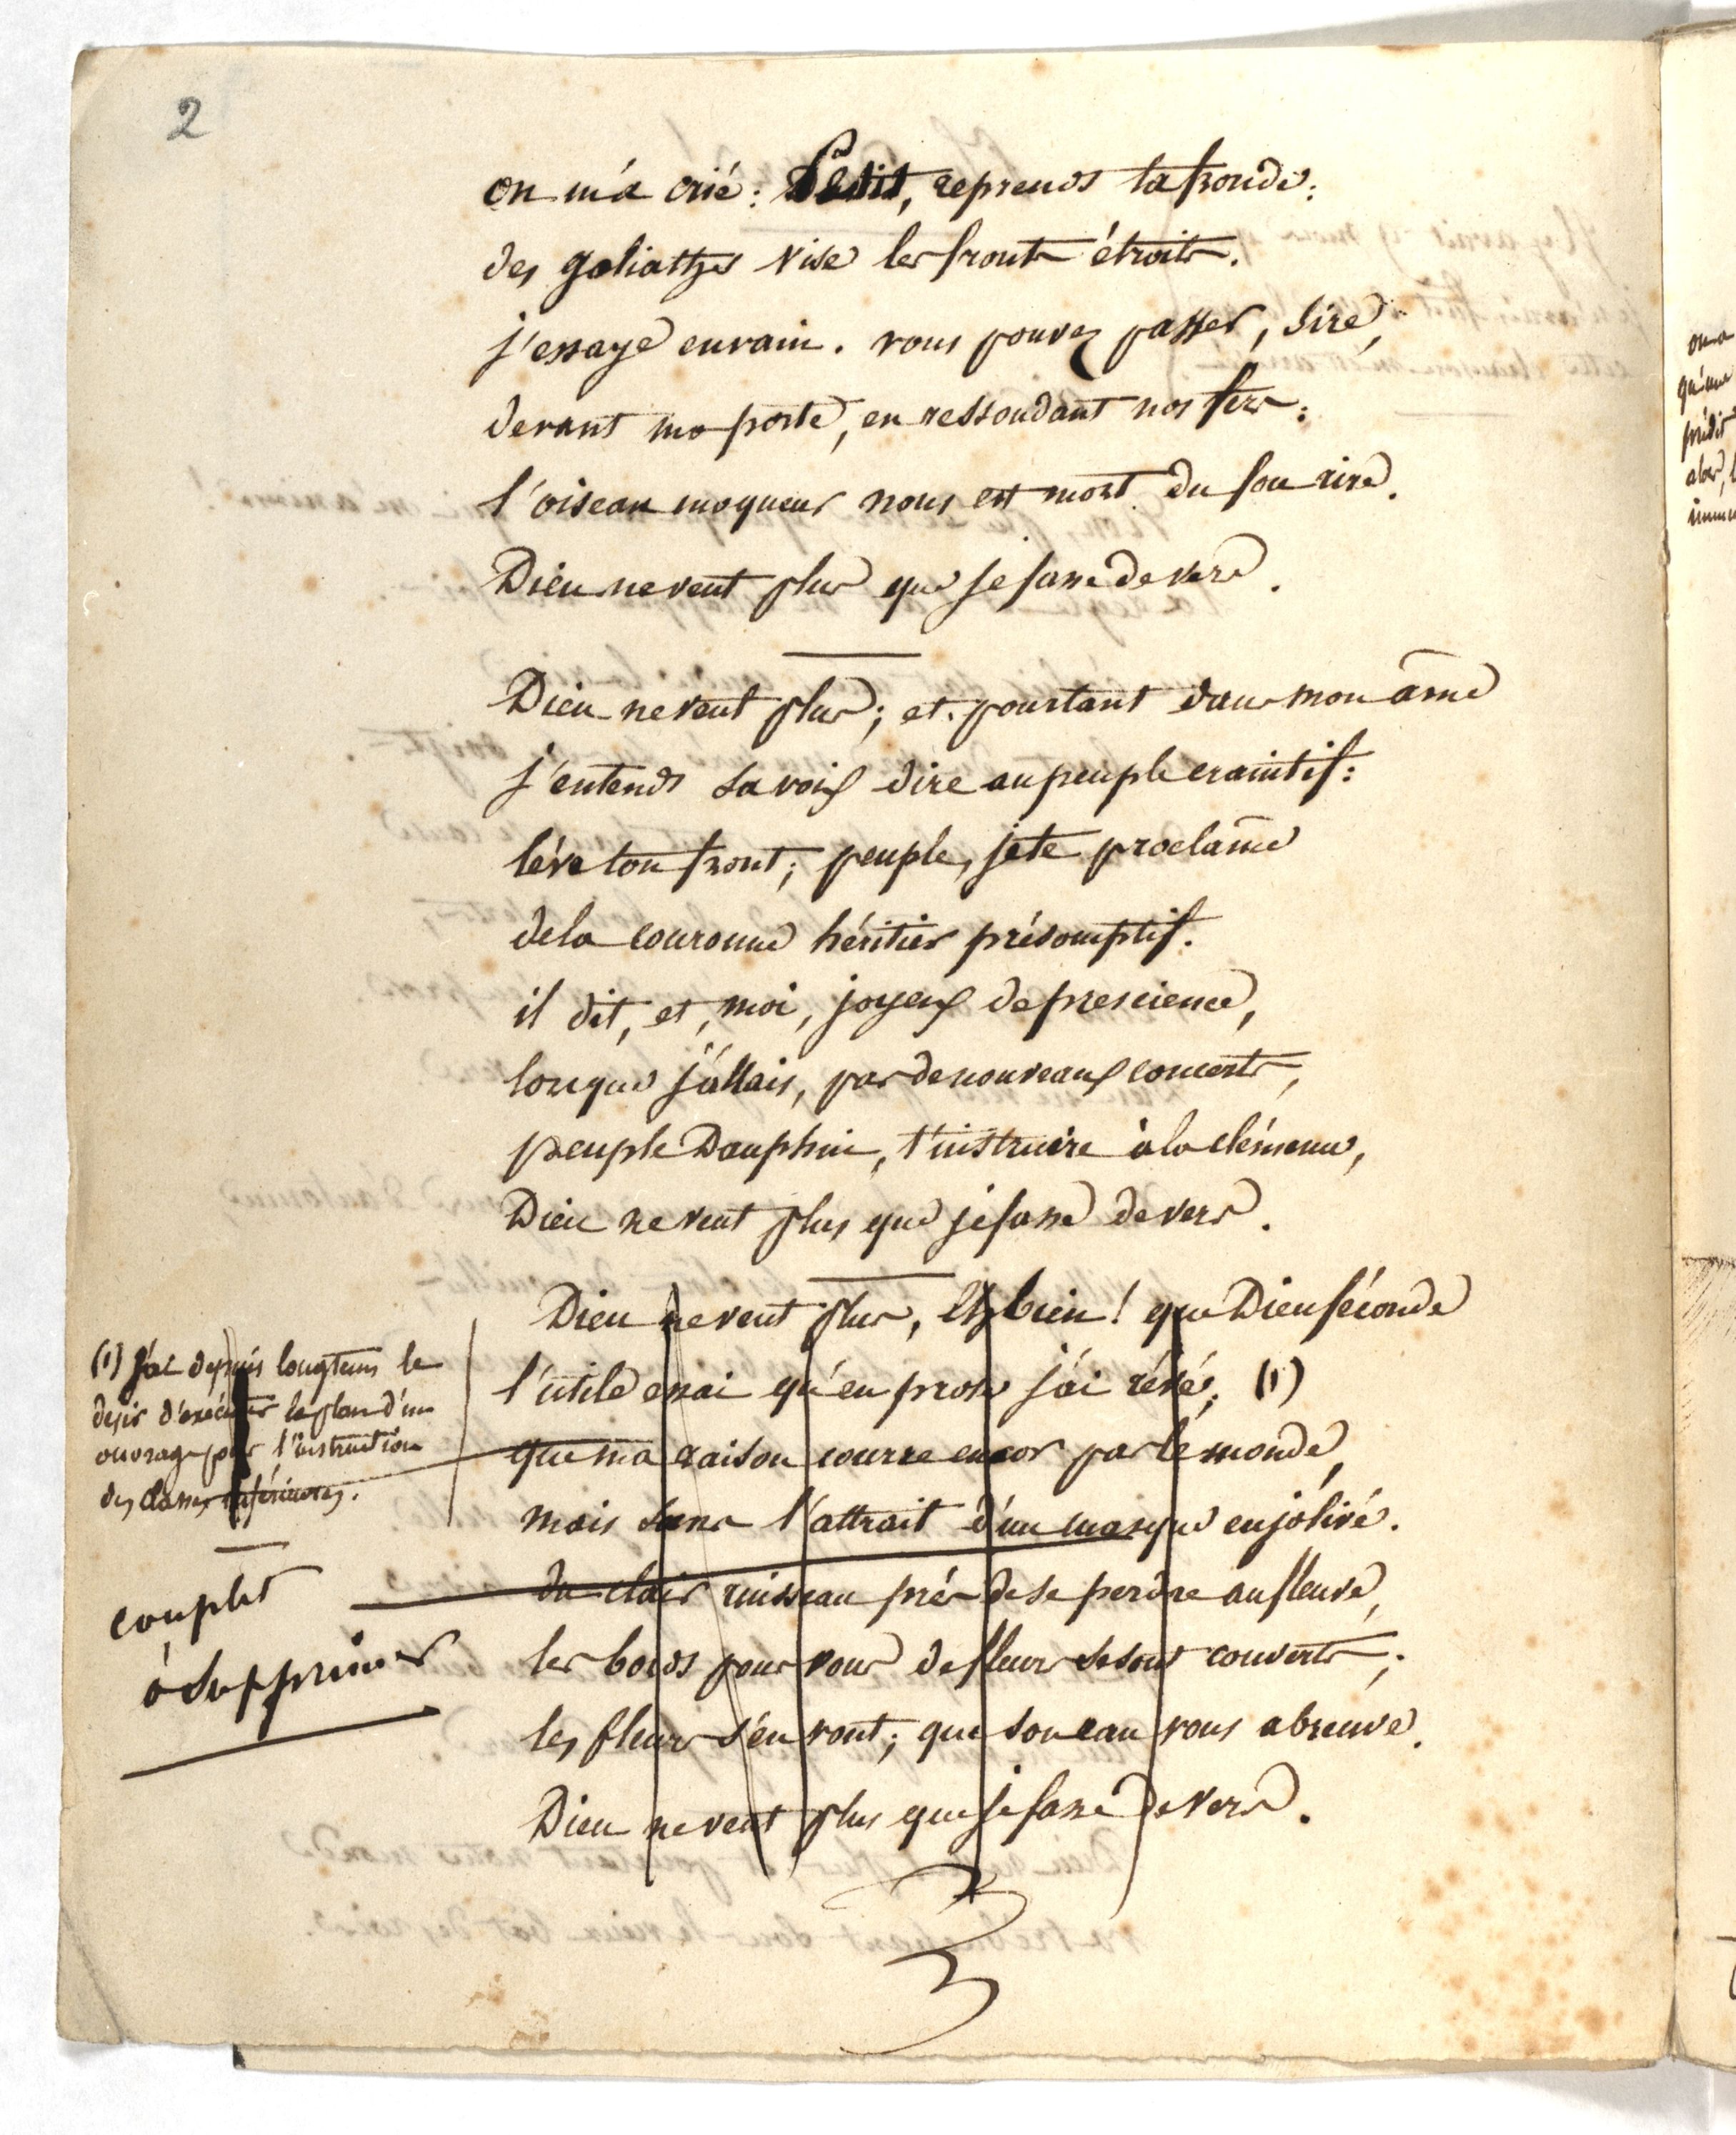 2
on m'a crié: Petit, reprends ta fronde:
des goliaths vise les fronts étroits.
j'essaye en vain. vous pouvez passer, Sire,
devant ma porte, en ressoudant nos fers:
l'oiseau moqueur nous est mort du fou rire.
Dieu ne veut plus que je fasse de vers.
Dieu ne veut plus; et pourtant dans mon âme
j'entends sa voix dire au peuple craintif:
léve ton front; peuple, je te proclâme
de la couronne héritier présomptif.
il dit, et, moi, joyeux de prescience,
lorsque j'allais, par de nouveaux concerts,
peuple Dauphin, t'instruire à la clémence,
Dieu ne veut plus que je fasse de vers.
Dieu ne veut plus, eh bien! que Dieu féconde
l'utile essai qu'en prose j'ai rêvé; (1)
que ma raison courre encor par le monde,
mais sans l'attrait d'un masque enjolivé.
du clair ruisseau près de se perdre au fleuve,
les bords pour vous de fleurs se sont couverts;
les fleurs s'en vont; que son eau vous abreuve.
Dieu ne veut plus que je fasse de vers.
(1) j'ai depuis longtems le
desir d'exécuter le plan d'un
ouvrage pour l'instruction
des classes inférieures.
couplet
à supprimer
on a
qu'une
prédit